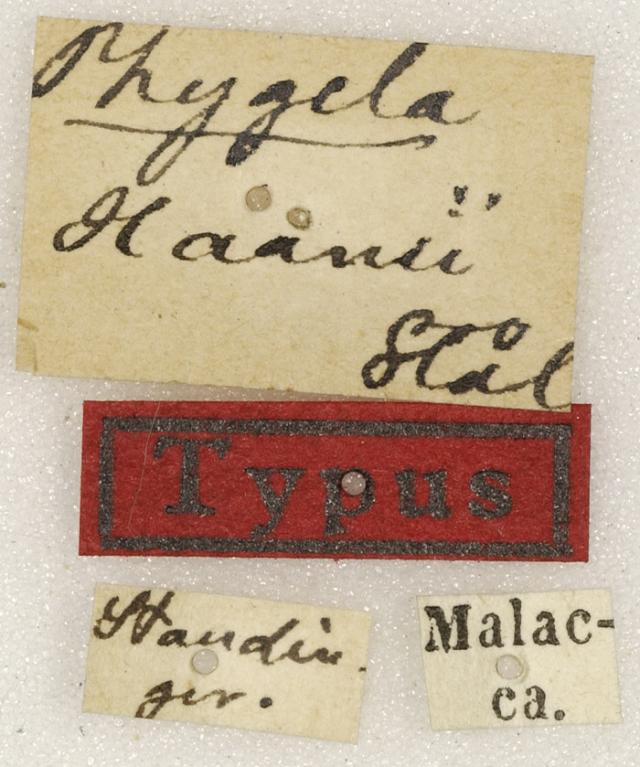 Phygela
Haanii
Stål
Typus
Staudin-
ger.
Malac-
ca.